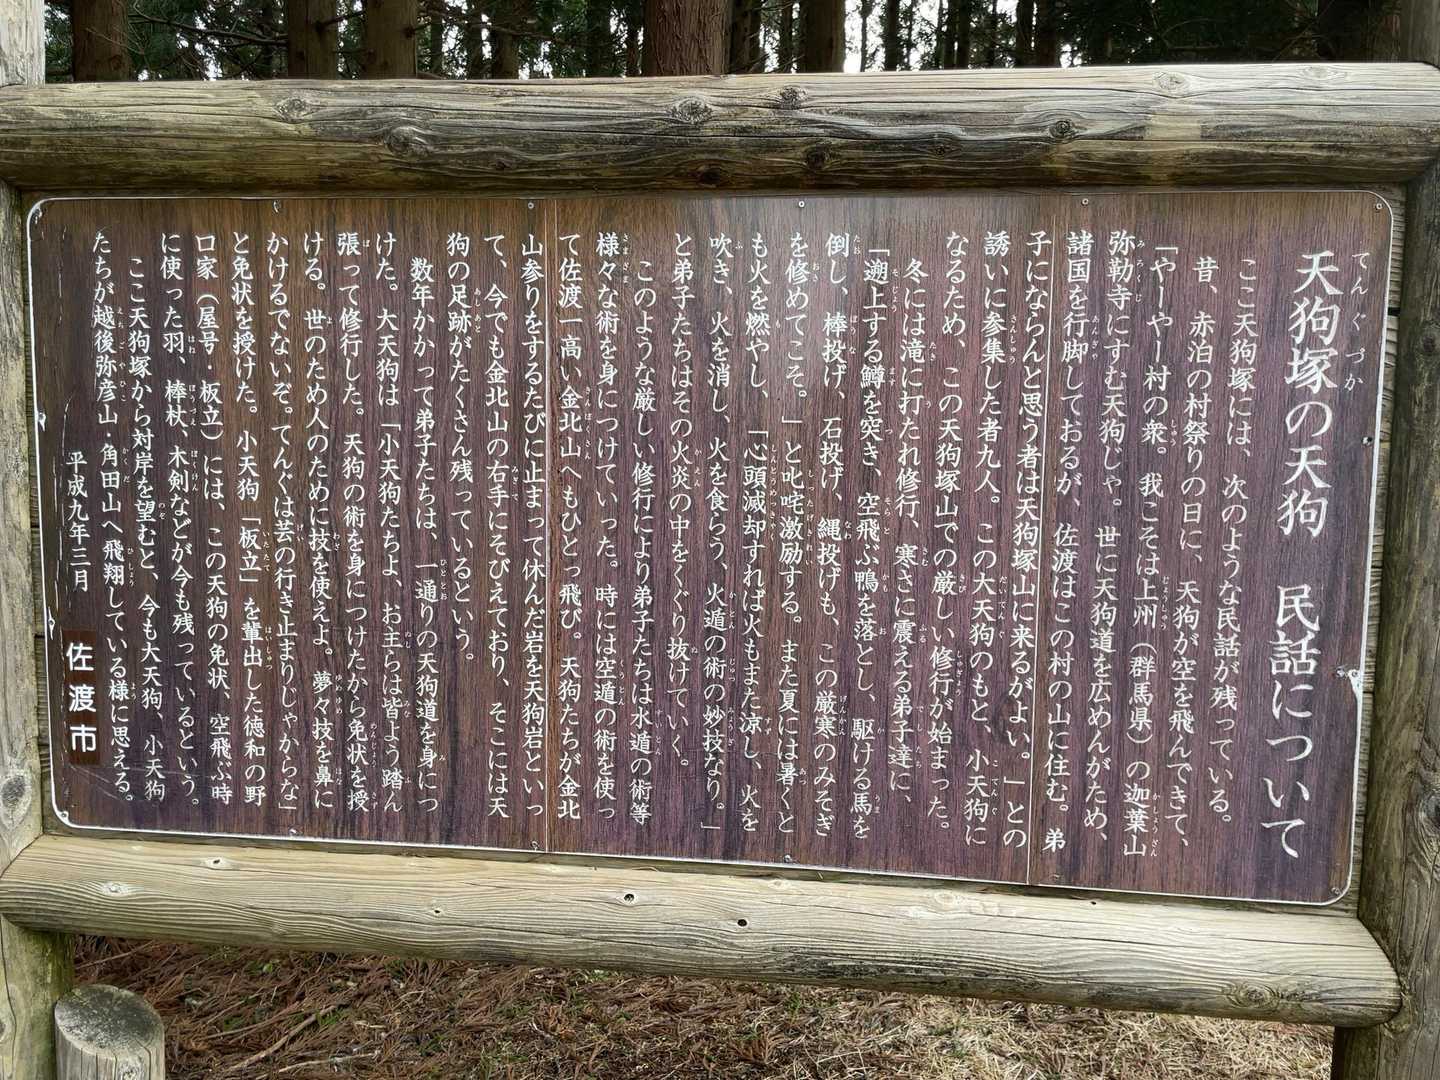 天狗塚の天狗　民話について
ここ天狗塚には、次のような民話が残っている。
昔、赤泊の村祭りの日に、天狗が空を飛んできて、
「やーやー村の衆。我こそは上州（群馬県）の迦葉山
弥勒寺にすむ天狗じゃ。世に天狗道を広めんがため、
諸国を行脚しておるが、佐渡はこの村の山に住む。弟
子にならんと思う者は天狗塚山に来るがよい。」との
誘いに参集した者九人。この大天狗のもと、小天狗に
なるため、この天狗塚山での厳しい修行が始まった。
冬には滝に打たれ修行、寒さに震える弟子達に、
「遡上する鱒を突き、空飛ぶ鴨を落とし、駆ける馬を
倒し、棒投げ、石投げ、縄投げも、この厳寒のみそぎ
を修めてこそ。」と叱咤激励する。また夏には暑くと
も火を燃やし、「心頭滅却すれば火もまた涼し、火を
吹き、火を消し、火を食らう、火遁の術の妙技なり。」
と弟子たちはその火炎の中をくぐり抜けていく。
このような厳しい修行により弟子たちは水遁の術等
様々な術を身につけていった。時には空遁の術を使っ
て佐渡一高い金北山へもひとっ飛び。天狗たちが金北
山参りをするたびに止まって休んだ岩を天狗岩といっ
て、今でも金北山の右手にそびえており、そこには天
狗の足跡がたくさん残っているという。
数年かかって弟子たちは、一通りの天狗道を身につ
けた。大天狗は「小天狗たちよ、お主らは皆よう踏ん
張って修行した。天狗の術を身につけたから免状を授
ける。世のため人のために技を使えよ。夢々技を鼻に
かけるでないぞ。てんぐは芸の行き止まりじゃからな」
と免状を授けた。小天狗「板立」を輩出した徳和の野
口家（屋号・板立）には、この天狗の免状、空飛ぶ時
に使った羽、棒杖、木剣などが今も残っているという。
ここ天狗塚から対岸を望むと、今も大天狗、小天狗
たちが越後弥彦山・角田山へ飛翔している様に思える。
平成九年三月
佐渡市